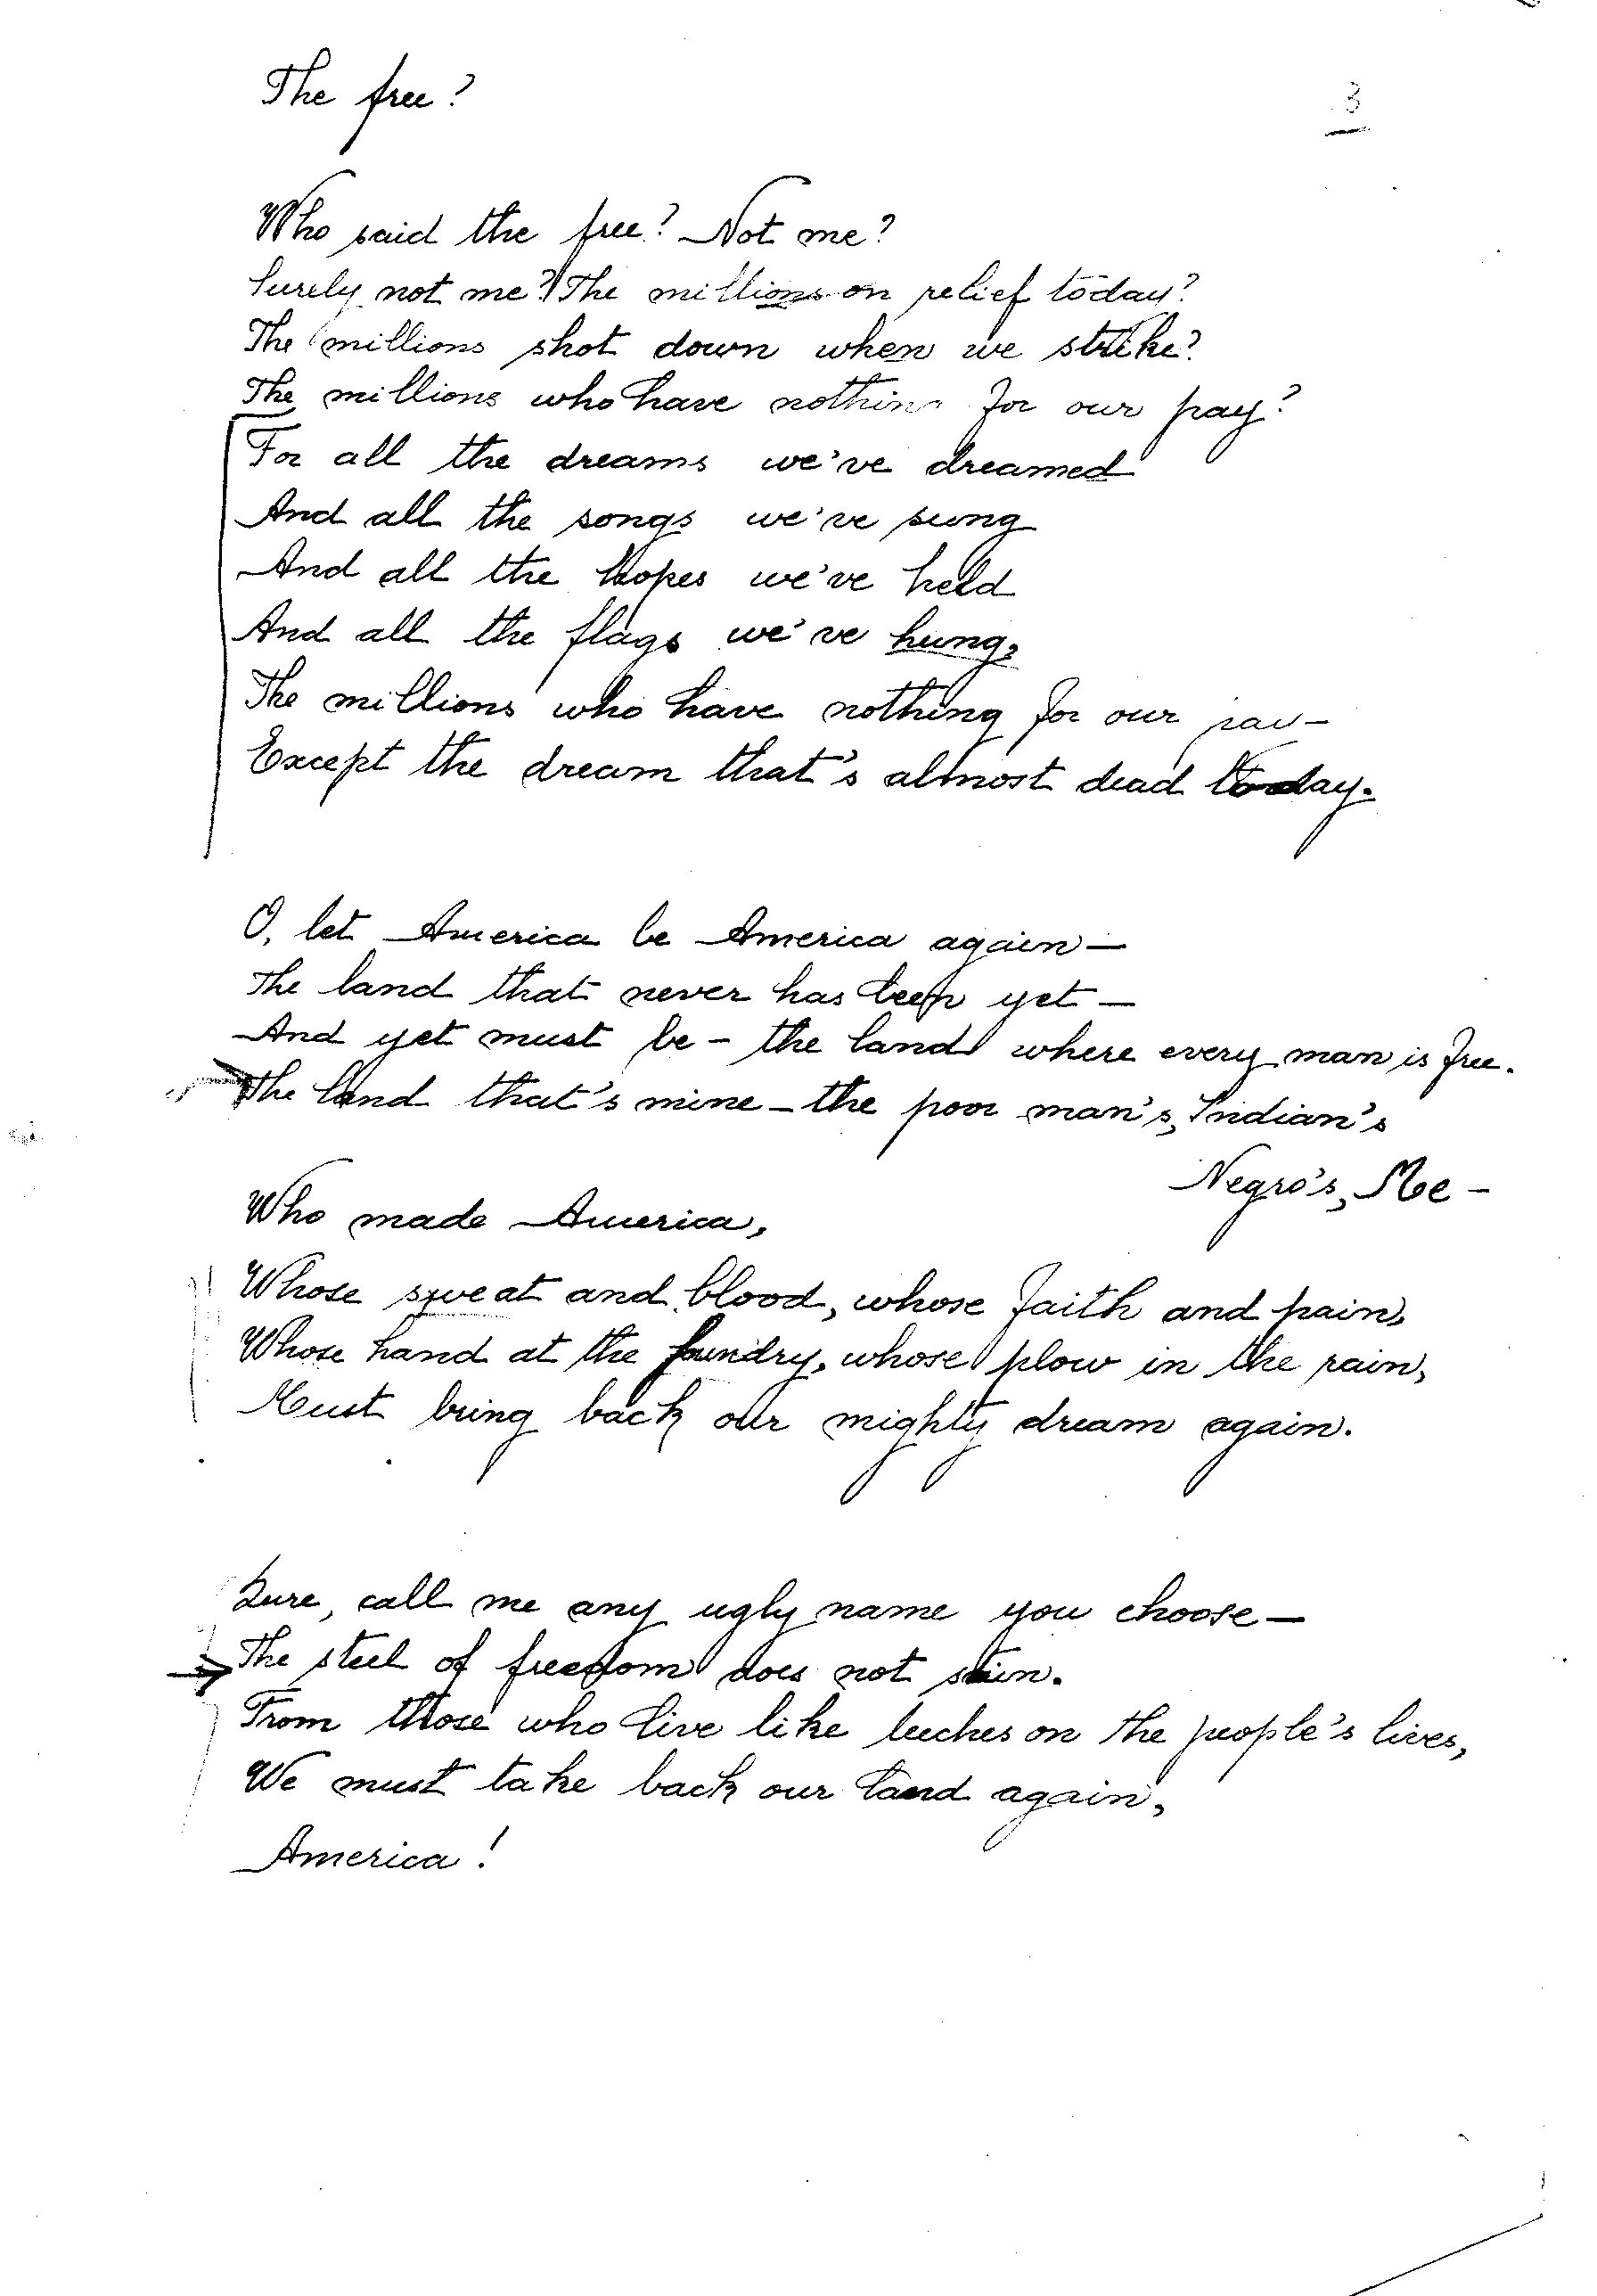 The free?
3
Who said the free? Not me?
Surely not me? The millions on relief today?
The millions shot down when we strike?
The millions who have nothing for our pay?
For all the dreams we've dreamed
And all the songs we've sung
And all the hopes we've held
And all the flags we've hung,
The millions who have nothing for our pay—
Except the dream that's almost dead today.
O, let America be America again—
The land that never has been yet—
And yet must be – the land where every man is free.
The land that's mine – the poor man's, Indian's
Negro's, Me –
Who made America,
Whose sweat and blood, whose faith and pain,
Whose hand at the foundry, whose plow in the rain,
Must bring back our mighty dream again.
Sure, call me any ugly name you choose—
The steel of freedom does not stain.
From those who live like leeches on the people's lives,
We must take back our land again,
America!